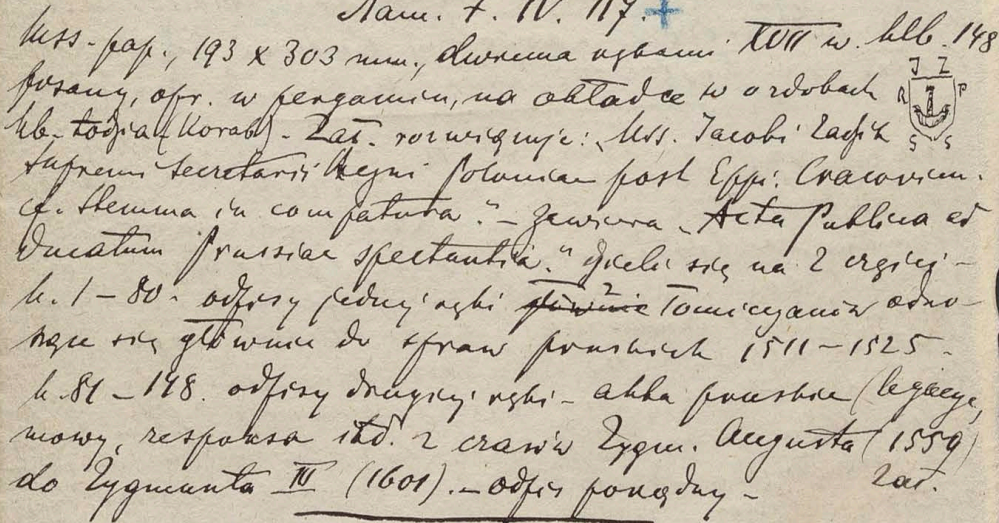 Nam. F. IV. 117.
Mss. pap., 193 x 303 mm., dwiema rękami XVII w. klb. 148
pisany, opr. w pergamin, na okładce w ozdobach
J Z
R P
S S
hb. Łodzia (Korab) - Zał. rozwiązuje: "Mss. Jacobi Zadzik
Supremi Secretarii Regni Poloniae post Eppi. Cracovien.
cf. Stemma in compatura." - Zawiera "Acta Publica ad
Ducatum Prussiae spectantia." Dzieli się na 2 części -
k. 1 - 80. odpisy jednej ręki Tomicyanów odno-
szące się głównie do spraw pruskich 1511 - 1525 -
k. 81 - 148. odpisy drugiej ręki - akta pruskie (legacye,
mowy, responsa itd. z czasów Zygm. Augusta (1559)
do Zygmunta III (1601). - odpis porządny - Zał.